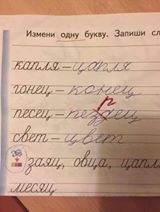 Измени одну букву. Запиши сл
капля – цапля
гонец – конец
песец – певец
свет – цвет
заяц, овца, цапл
месяц